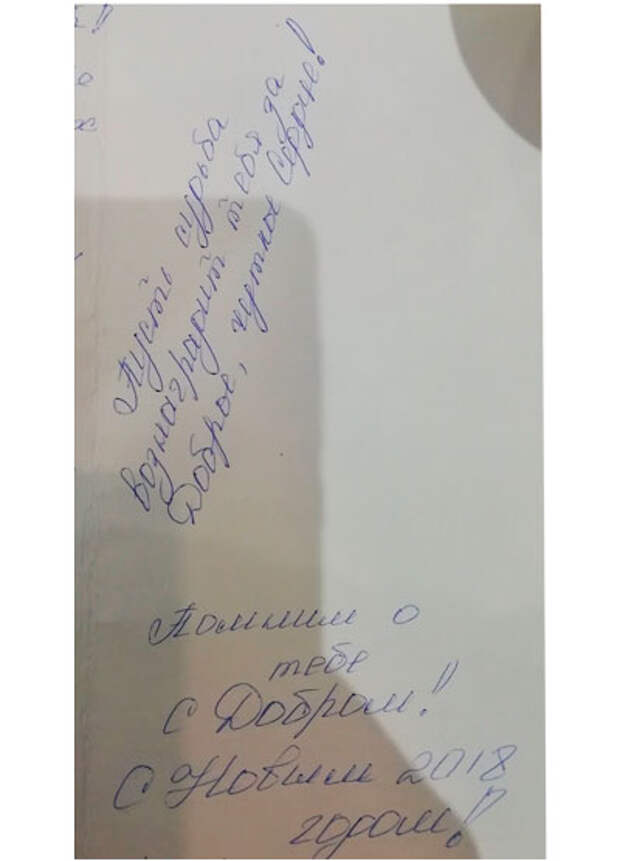 Пусть судьба
вознаградит тебя за
Доброе, чуткое Сердце!
Помним о
тебе
с Добром!
С Новым 2018
годом!